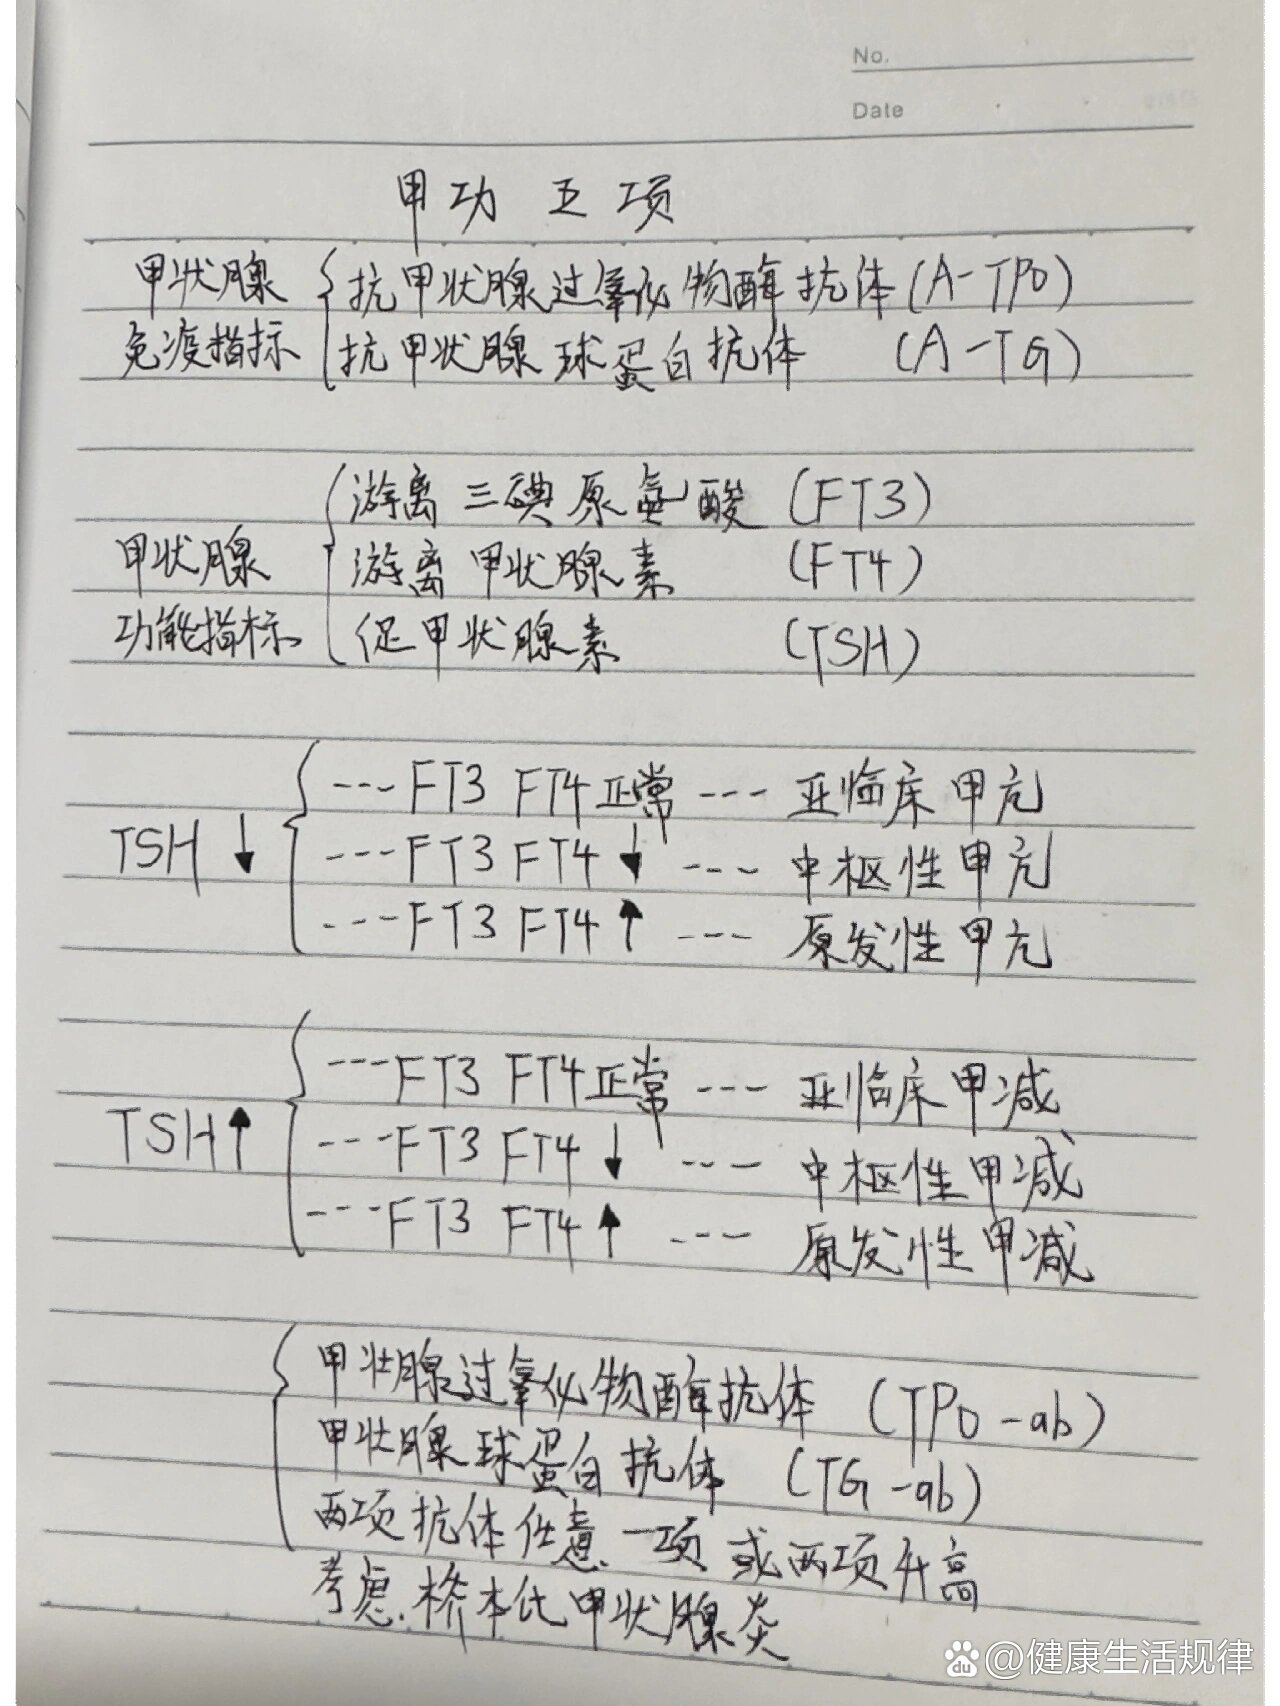 No.
Date
甲功五项
甲状腺 抗甲状腺过氧化物酶抗体(A-TPO)
免疫指标 抗甲状腺球蛋白抗体 (A-TG)
游离三碘原氨酸 (FT3)
甲状腺 游离甲状腺素 (FT4)
功能指标 促甲状腺素 (TSH)
---FT3 FT4正常---亚临床甲亢
TSH↓ ---FT3 FT4↓---中枢性甲亢
---FT3 FT4↑---原发性甲亢
---FT3 FT4正常---亚临床甲减
TSH↑ ---FT3 FT4↓---中枢性甲减
---FT3 FT4↑---原发性甲减
甲状腺过氧化物酶抗体 (TPO-ab)
甲状腺球蛋白抗体 (TG-ab)
两项抗体任意一项或两项升高
考虑.桥本氏甲状腺炎
Baidu @健康生活规律